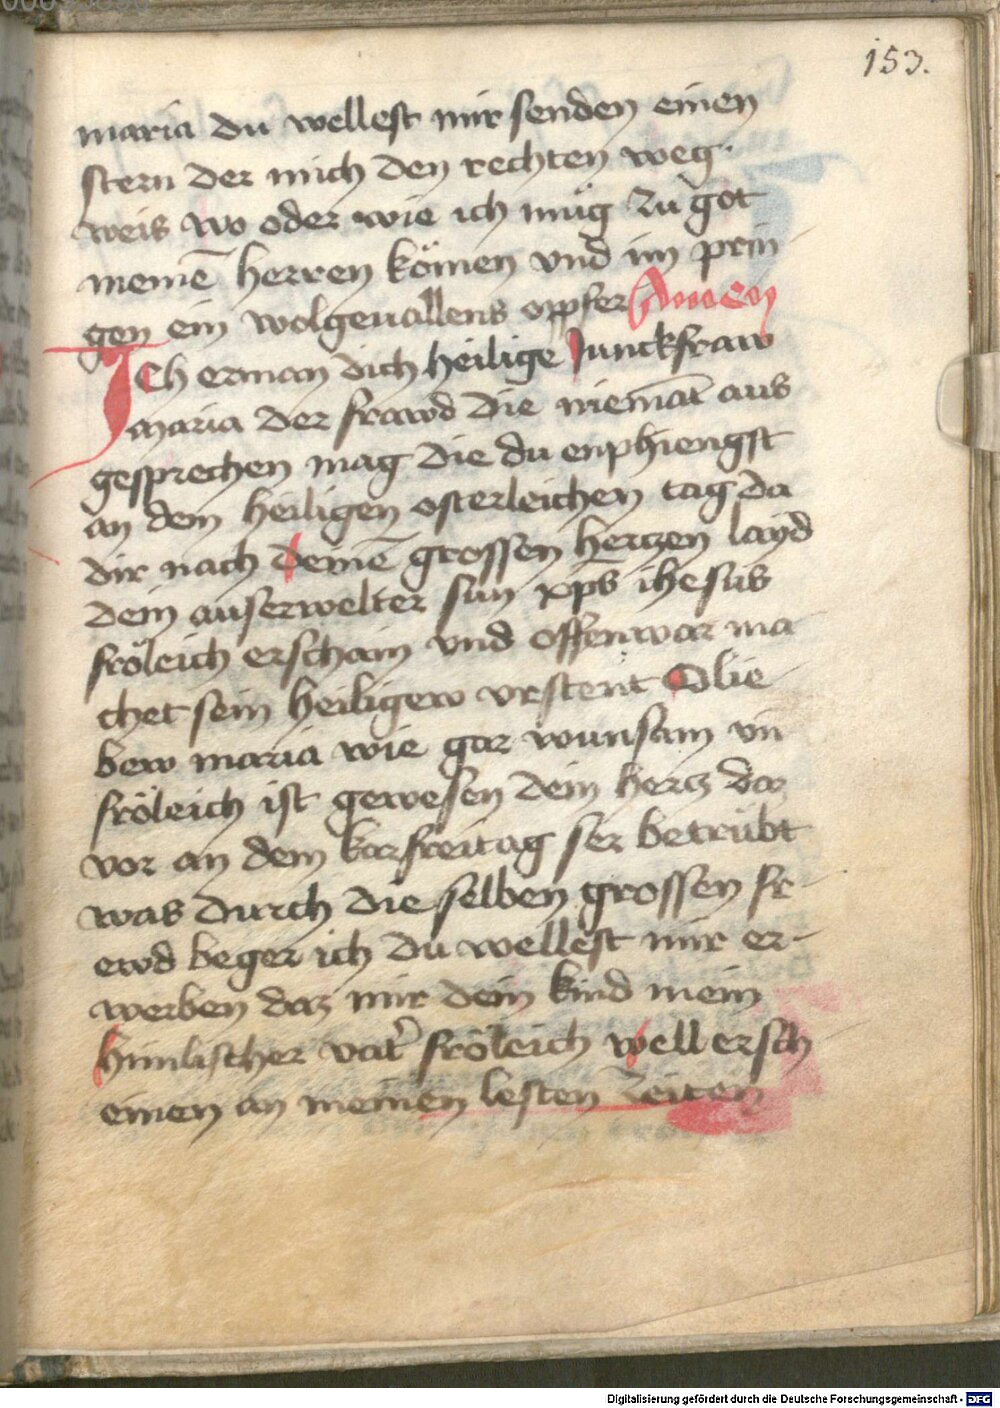 153.
maria du wellest mir senden einen
stern der mich den rechten weg
weis wo oder wie ich müg zu got
meinē herren kömen vnd im prin
gen ein wolgeuallens opfer Amen
Ich erman dich heilige Junckfraw
maria der frawd die niemāt aus
gesprechen mag die du enphiengst
an dem heiligen osterleichen tag da
dir nach deinē grossen hertzen layd
dein auserwelter sun xp̄s ihesus
fröleich erschain vnd offenwar ma
chet sein heiligew vrstent O lie
bew maria wie gar wunsam vn̄
fröleich ist gewesen dein hertz daz
vor an dem karfreitag ser betrübt
was durch die selben grossen fr
ewd beger ich du wellest mir er-
werben daz mir dein kind mein
himlischer vat̄ fröleich well ersch
einen an meinen lesten Zeiten
Digitalisierung gefördert durch die Deutsche Forschungsgemeinschaft - DFG